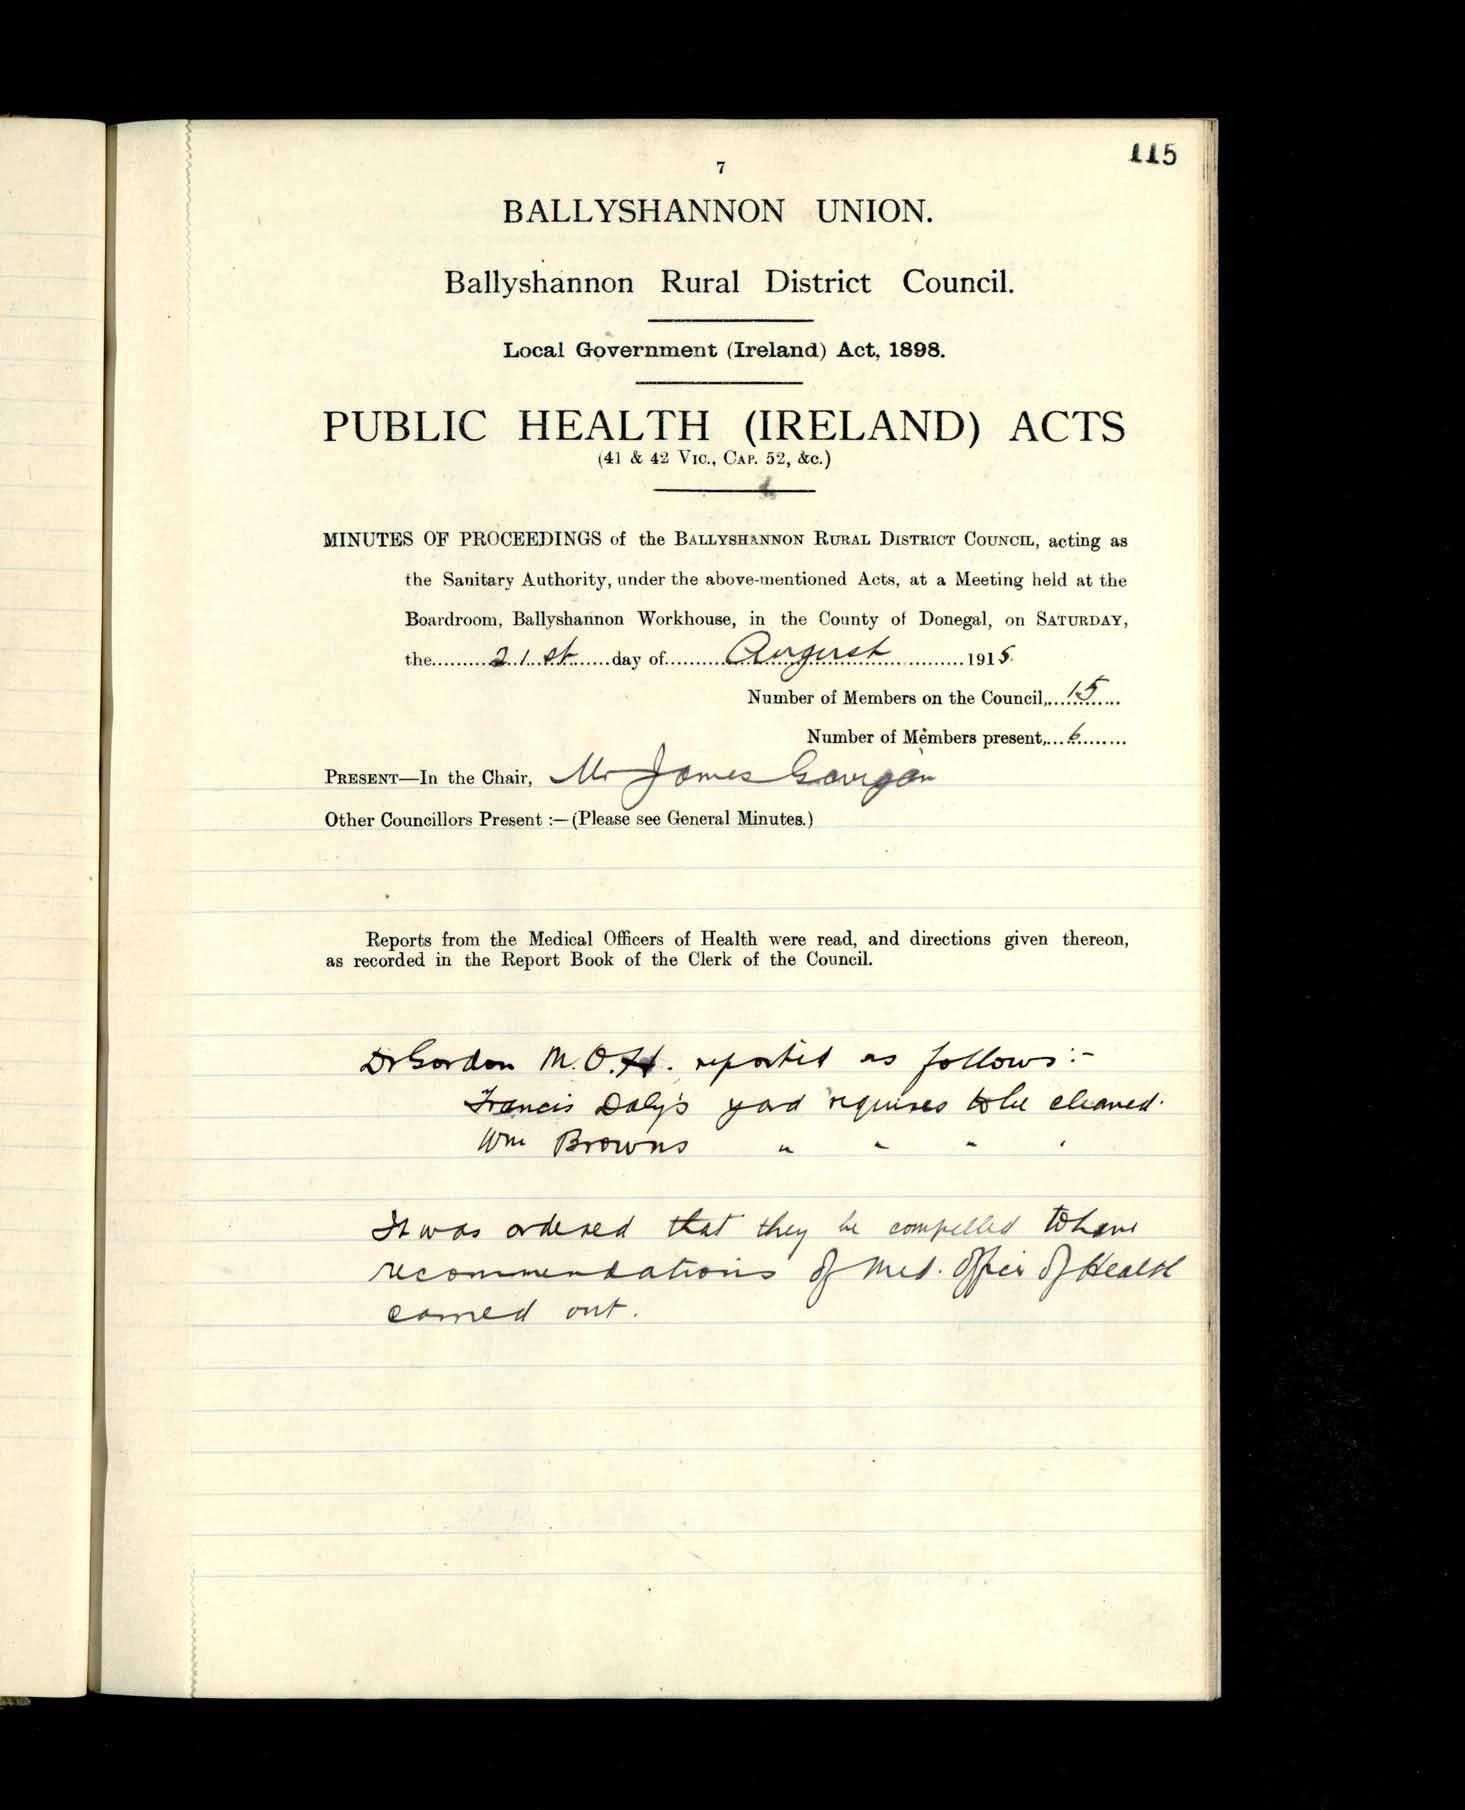 115
7
BALLYSHANNON UNION.
Ballyshannon Rural District Council.
Local Government (Ireland) Act, 1898.
PUBLIC HEALTH (IRELAND) ACTS
(41 & 42 Vic., Cap. 52, &c.)
MINUTES OF PROCEEDINGS of the Ballyshannon Rural District Council, acting as
the Sanitary Authority, under the above-mentioned Acts, at a Meeting held at the
Boardroom, Ballyshannon Workhouse, in the County of Donegal, on Saturday,
the..........21st.......day of..........August...........1915.
Number of Members on the Council,....15....
Number of Members present,...6........
Present—In the Chair, Mr James Gavigan
Other Councillors Present :—(Please see General Minutes.)
Reports from the Medical Officers of Health were read, and directions given thereon,
as recorded in the Report Book of the Clerk of the Council.
Dr Gordon M.O.H. reported as follows :-
Francis Daly's yard requires to be cleaned.
Wm Browns " " " "
It was ordered that they be compelled to have
recommendations of Med. Officer of Health
carried out.